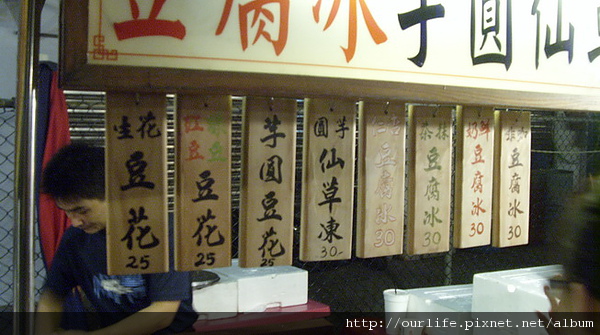 豆腐冰 芋圓仙
花生
豆花
25
綠豆
紅豆
豆花
25
芋圓豆花
25
芋圓
仙草凍
30.-
杏仁
豆腐冰
30
抹茶
豆腐冰
30
鮮奶
豆腐冰
30
豆腐冰
30
http://ourlife.pixnet.net/album